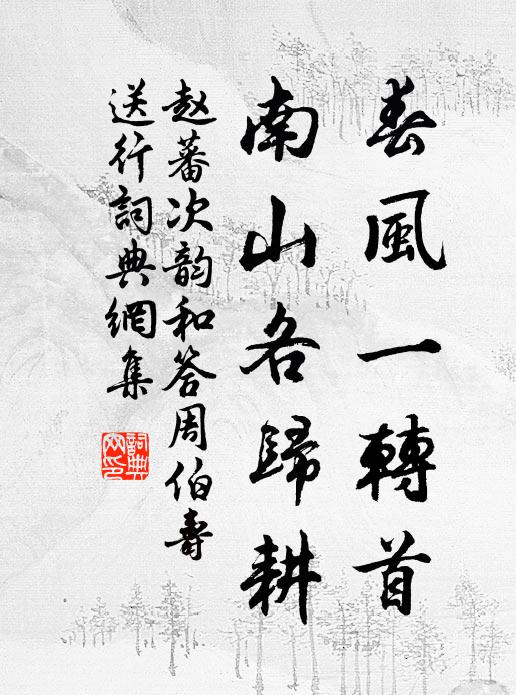 春風一轉首
南山各歸耕
赵蕃次韵和答周伯壽
送行詞典網集
詞典网印